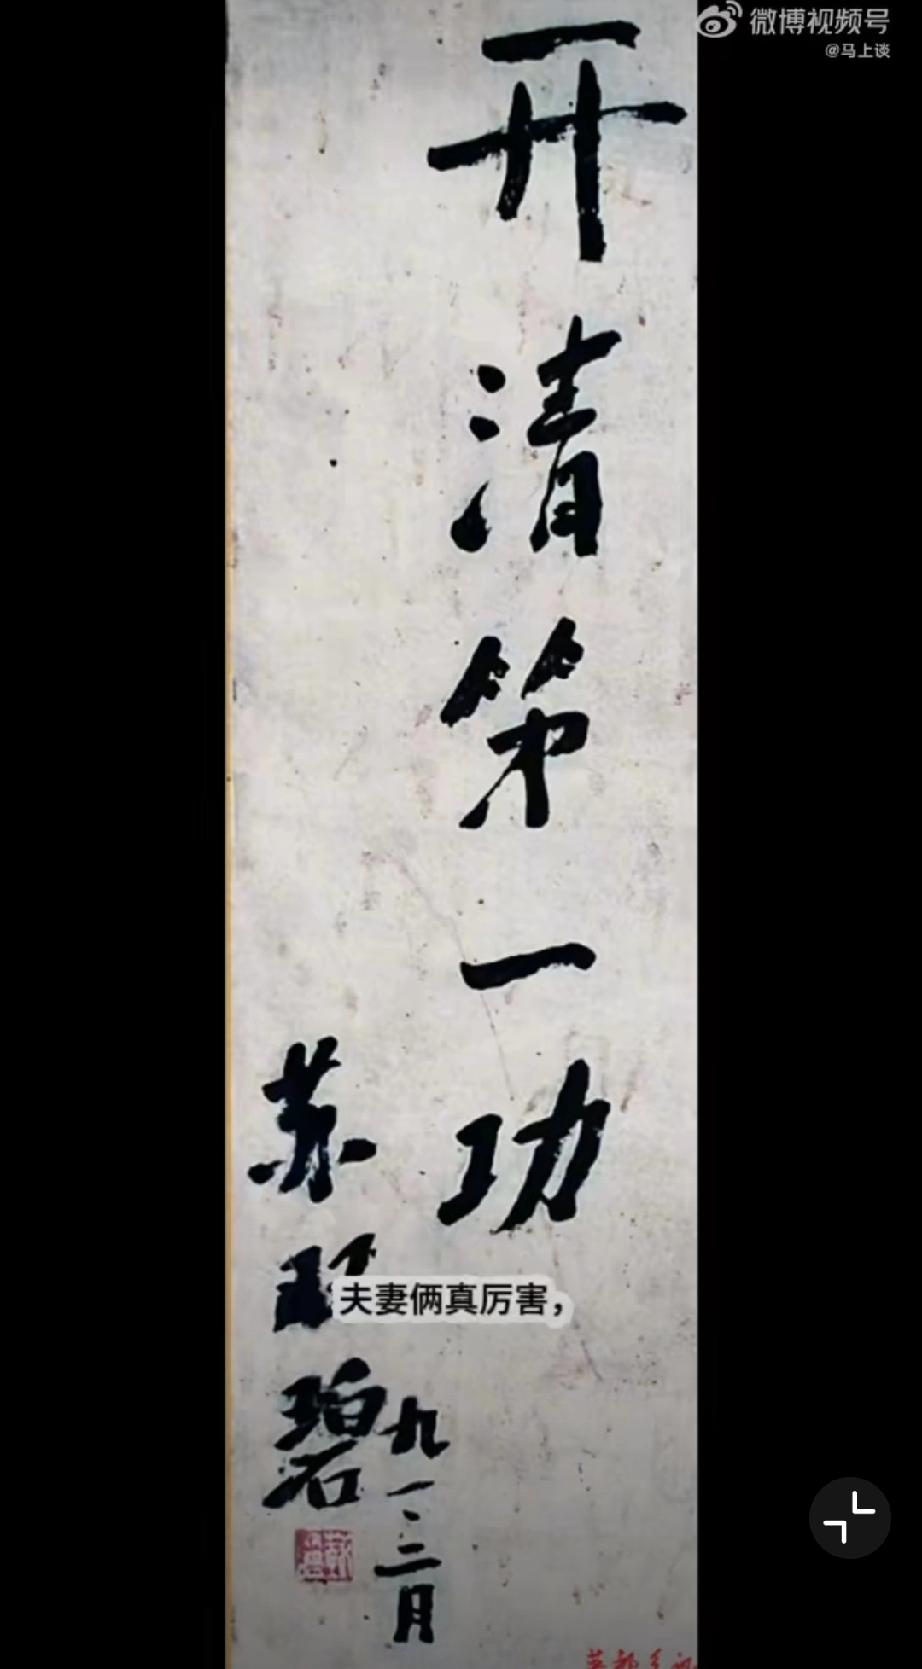 微博视频号
@马上谈
开清第一功
苏
碧
九一、二月
夫妻俩真厉害，